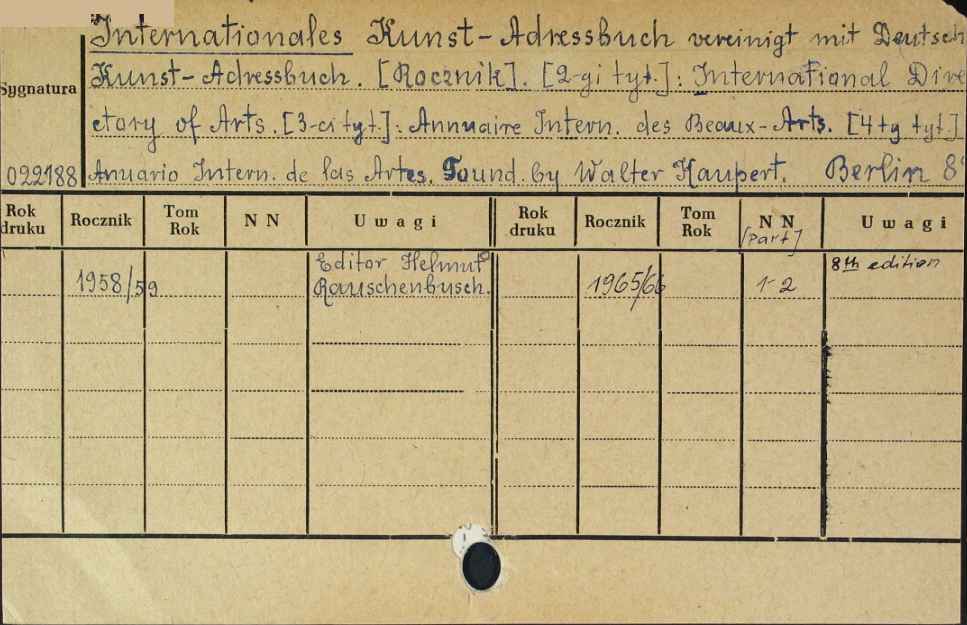 Internationales Kunst-Adressbuch vereinigt mit Deutsch
Kunst-Adressbuch. [Rocznik]. [2-gi tyt.]: International Dire
Sygnatura
ctory of Arts. [3-ci tyt.]: Annuaire Intern. des Beaux-Arts. [4ty tyt.]
022188 Anuario Intern. de las Artes. Found. by Walter Kaupert. Berlin 8°
Rok druku Rocznik Tom Rok N N Uwagi Rok druku Rocznik Tom Rok N N [part] Uwagi
Editor Helmut 8th edition
1958/59 Rauschenbusch. 1965/66 1-2